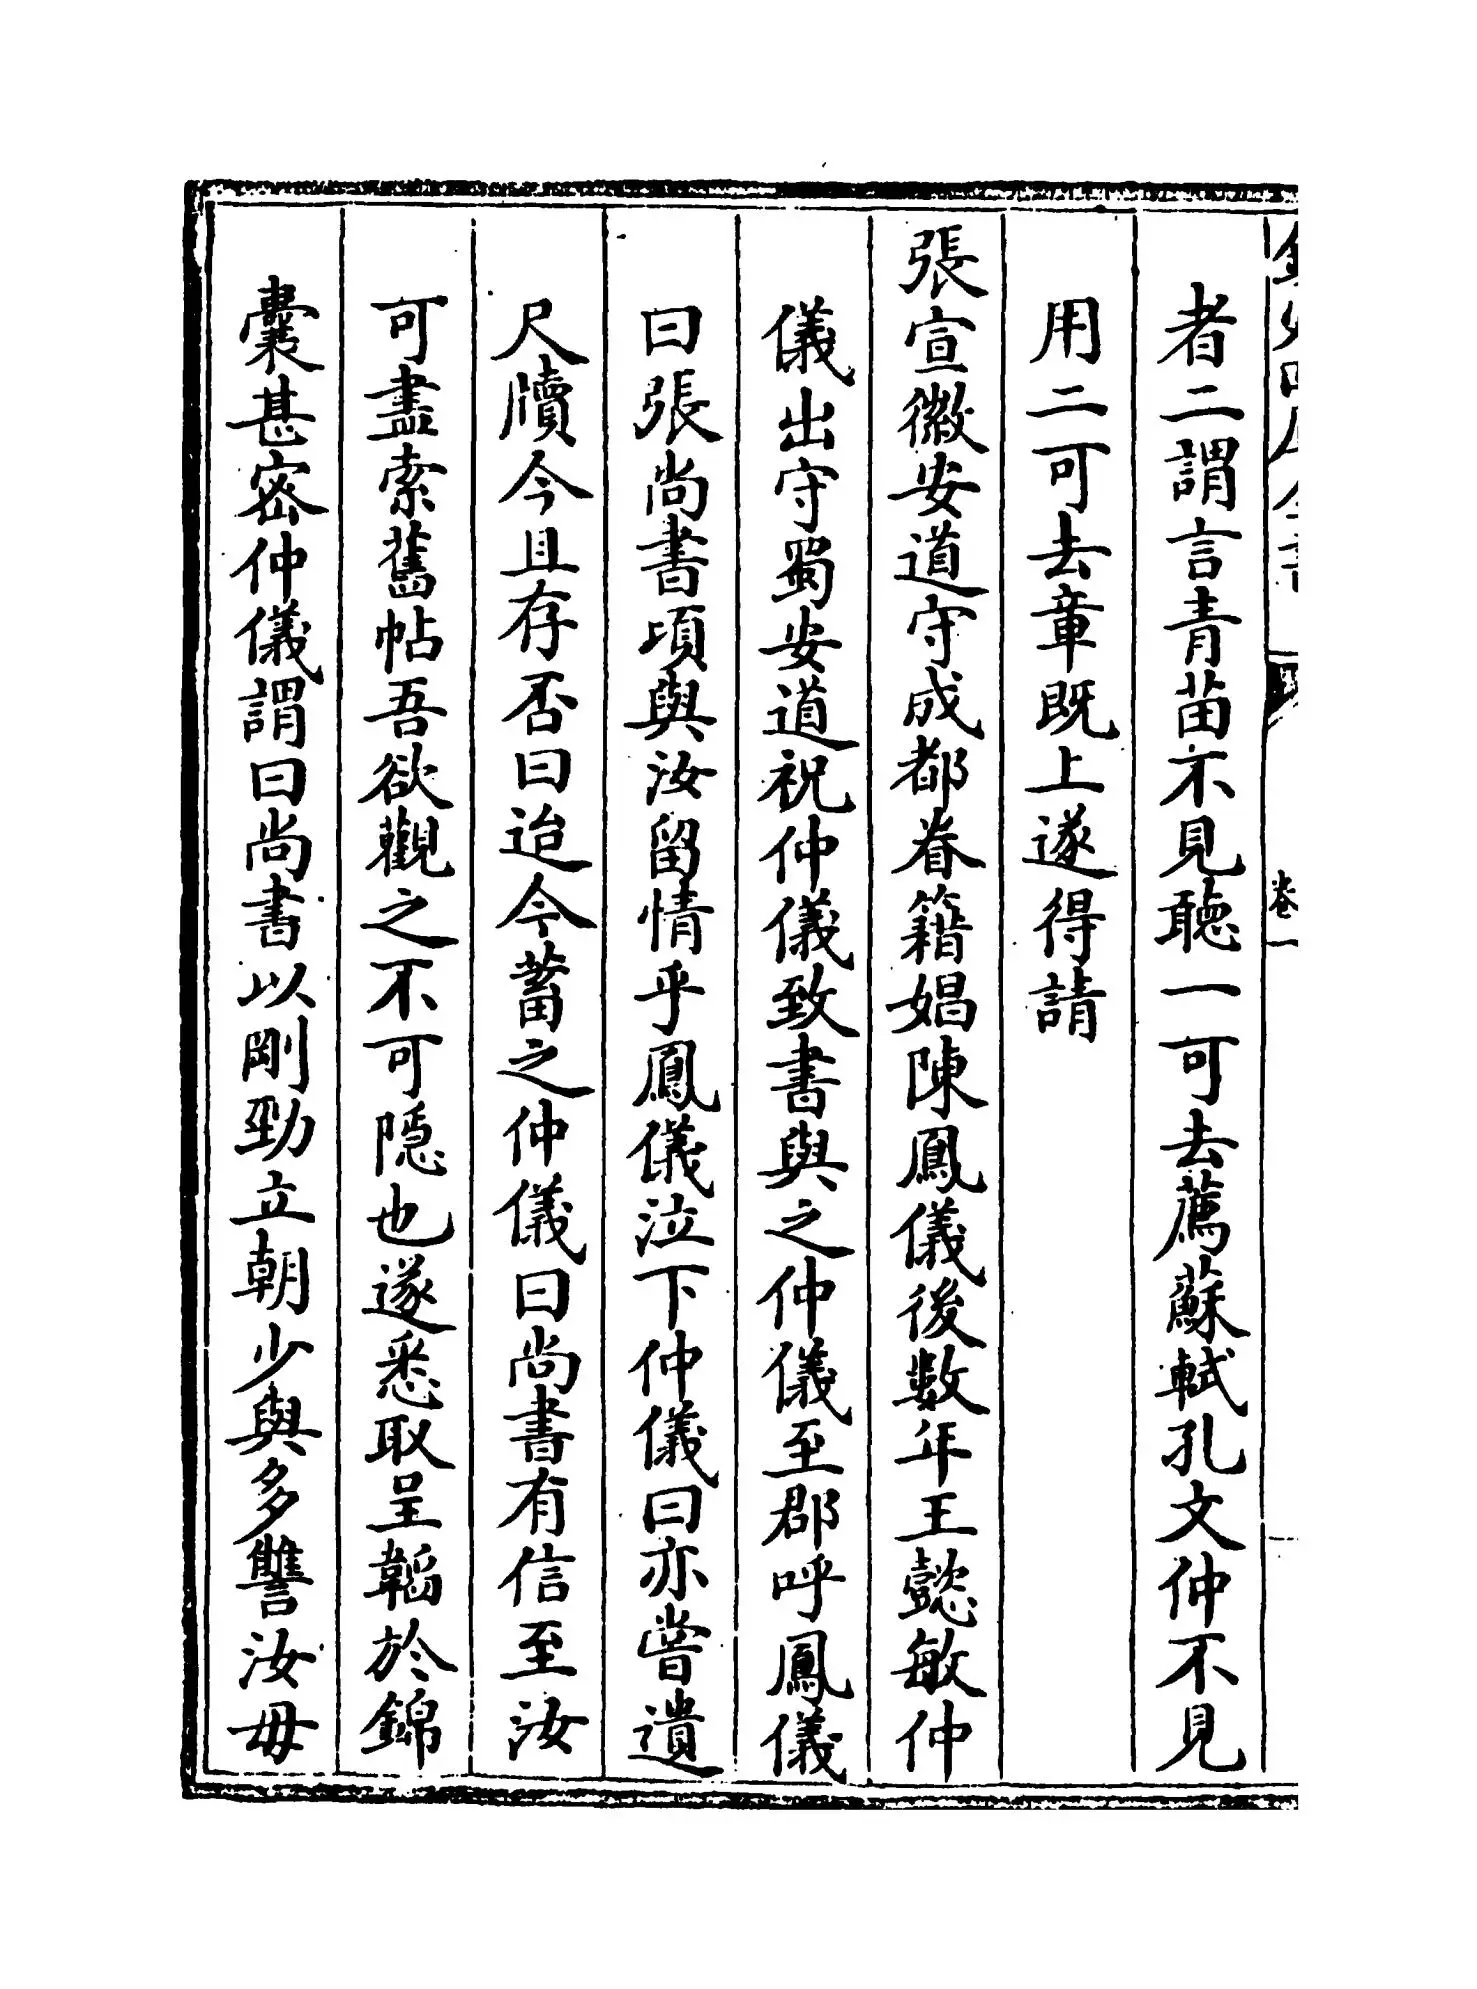 者二謂言青苗不見聽一可去薦蘇軾孔文仲不見
用二可去章既上遂得請
張宣徽安道守成都眷籍娼陳鳳儀後數年王懿敏仲
儀出守蜀安道祝仲儀致書與之仲儀至郡呼鳳儀
曰張尚書頃與汝留情乎鳳儀泣下仲儀曰亦嘗遺
尺牘今且存否曰迨今蓄之仲儀曰尚書有信至汝
可盡索舊帖吾欲觀之不可隠也遂悉取呈韜於錦
囊甚密仲儀謂曰尚書以剛勁立朝少與多讐汝毋
卷一